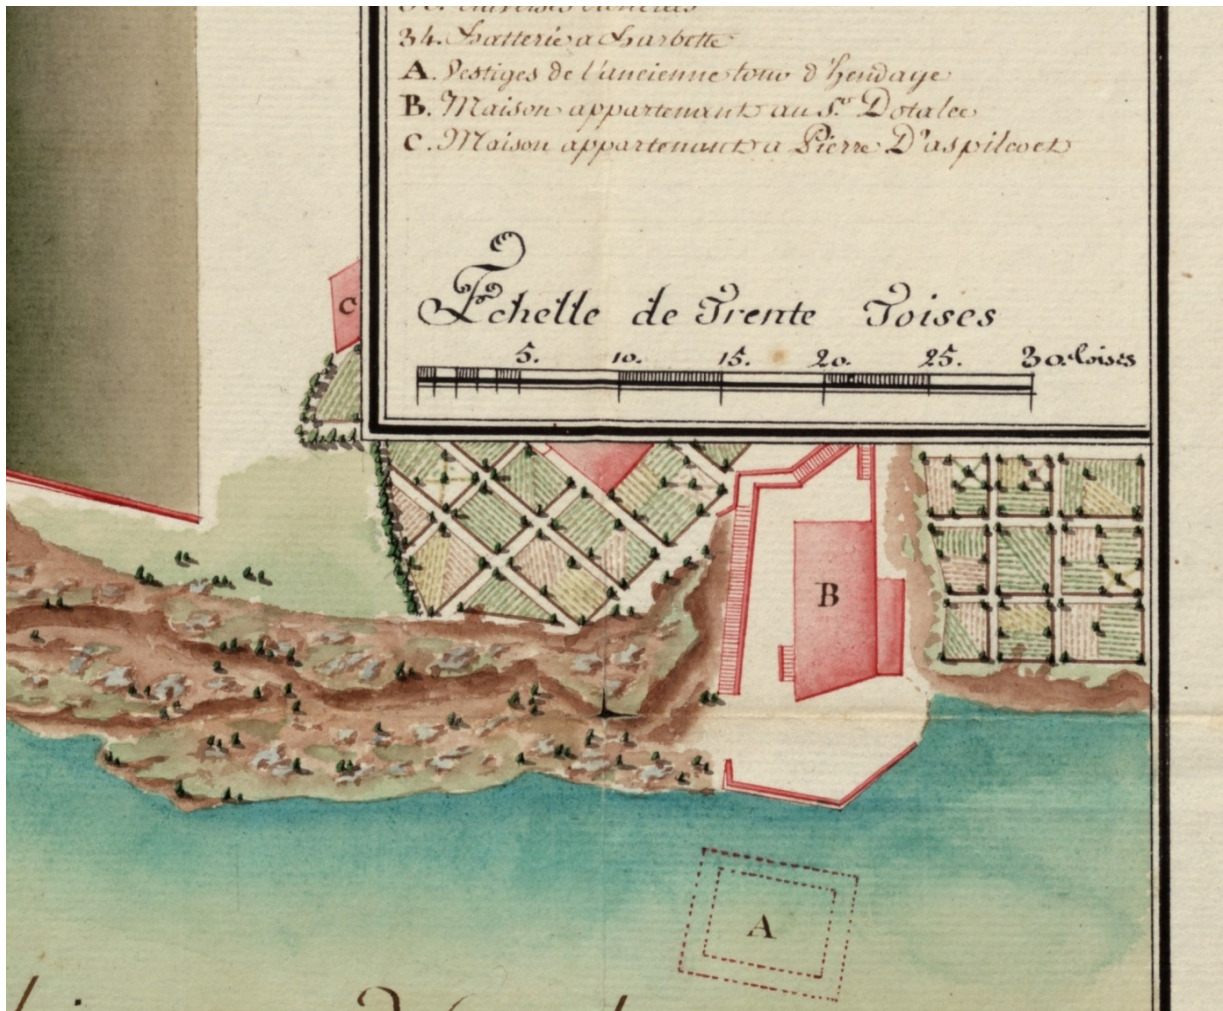 34. Batterie a Barbette
A. Vestiges de l'ancienne tour d'hendaye
B. Maison appartenant au S.r Dotalee
C. Maison appartenant a Pierre D'aspilcoet
Echelle de Trente Toises
5. 10. 15. 20. 25. 30. toises
C
B
A